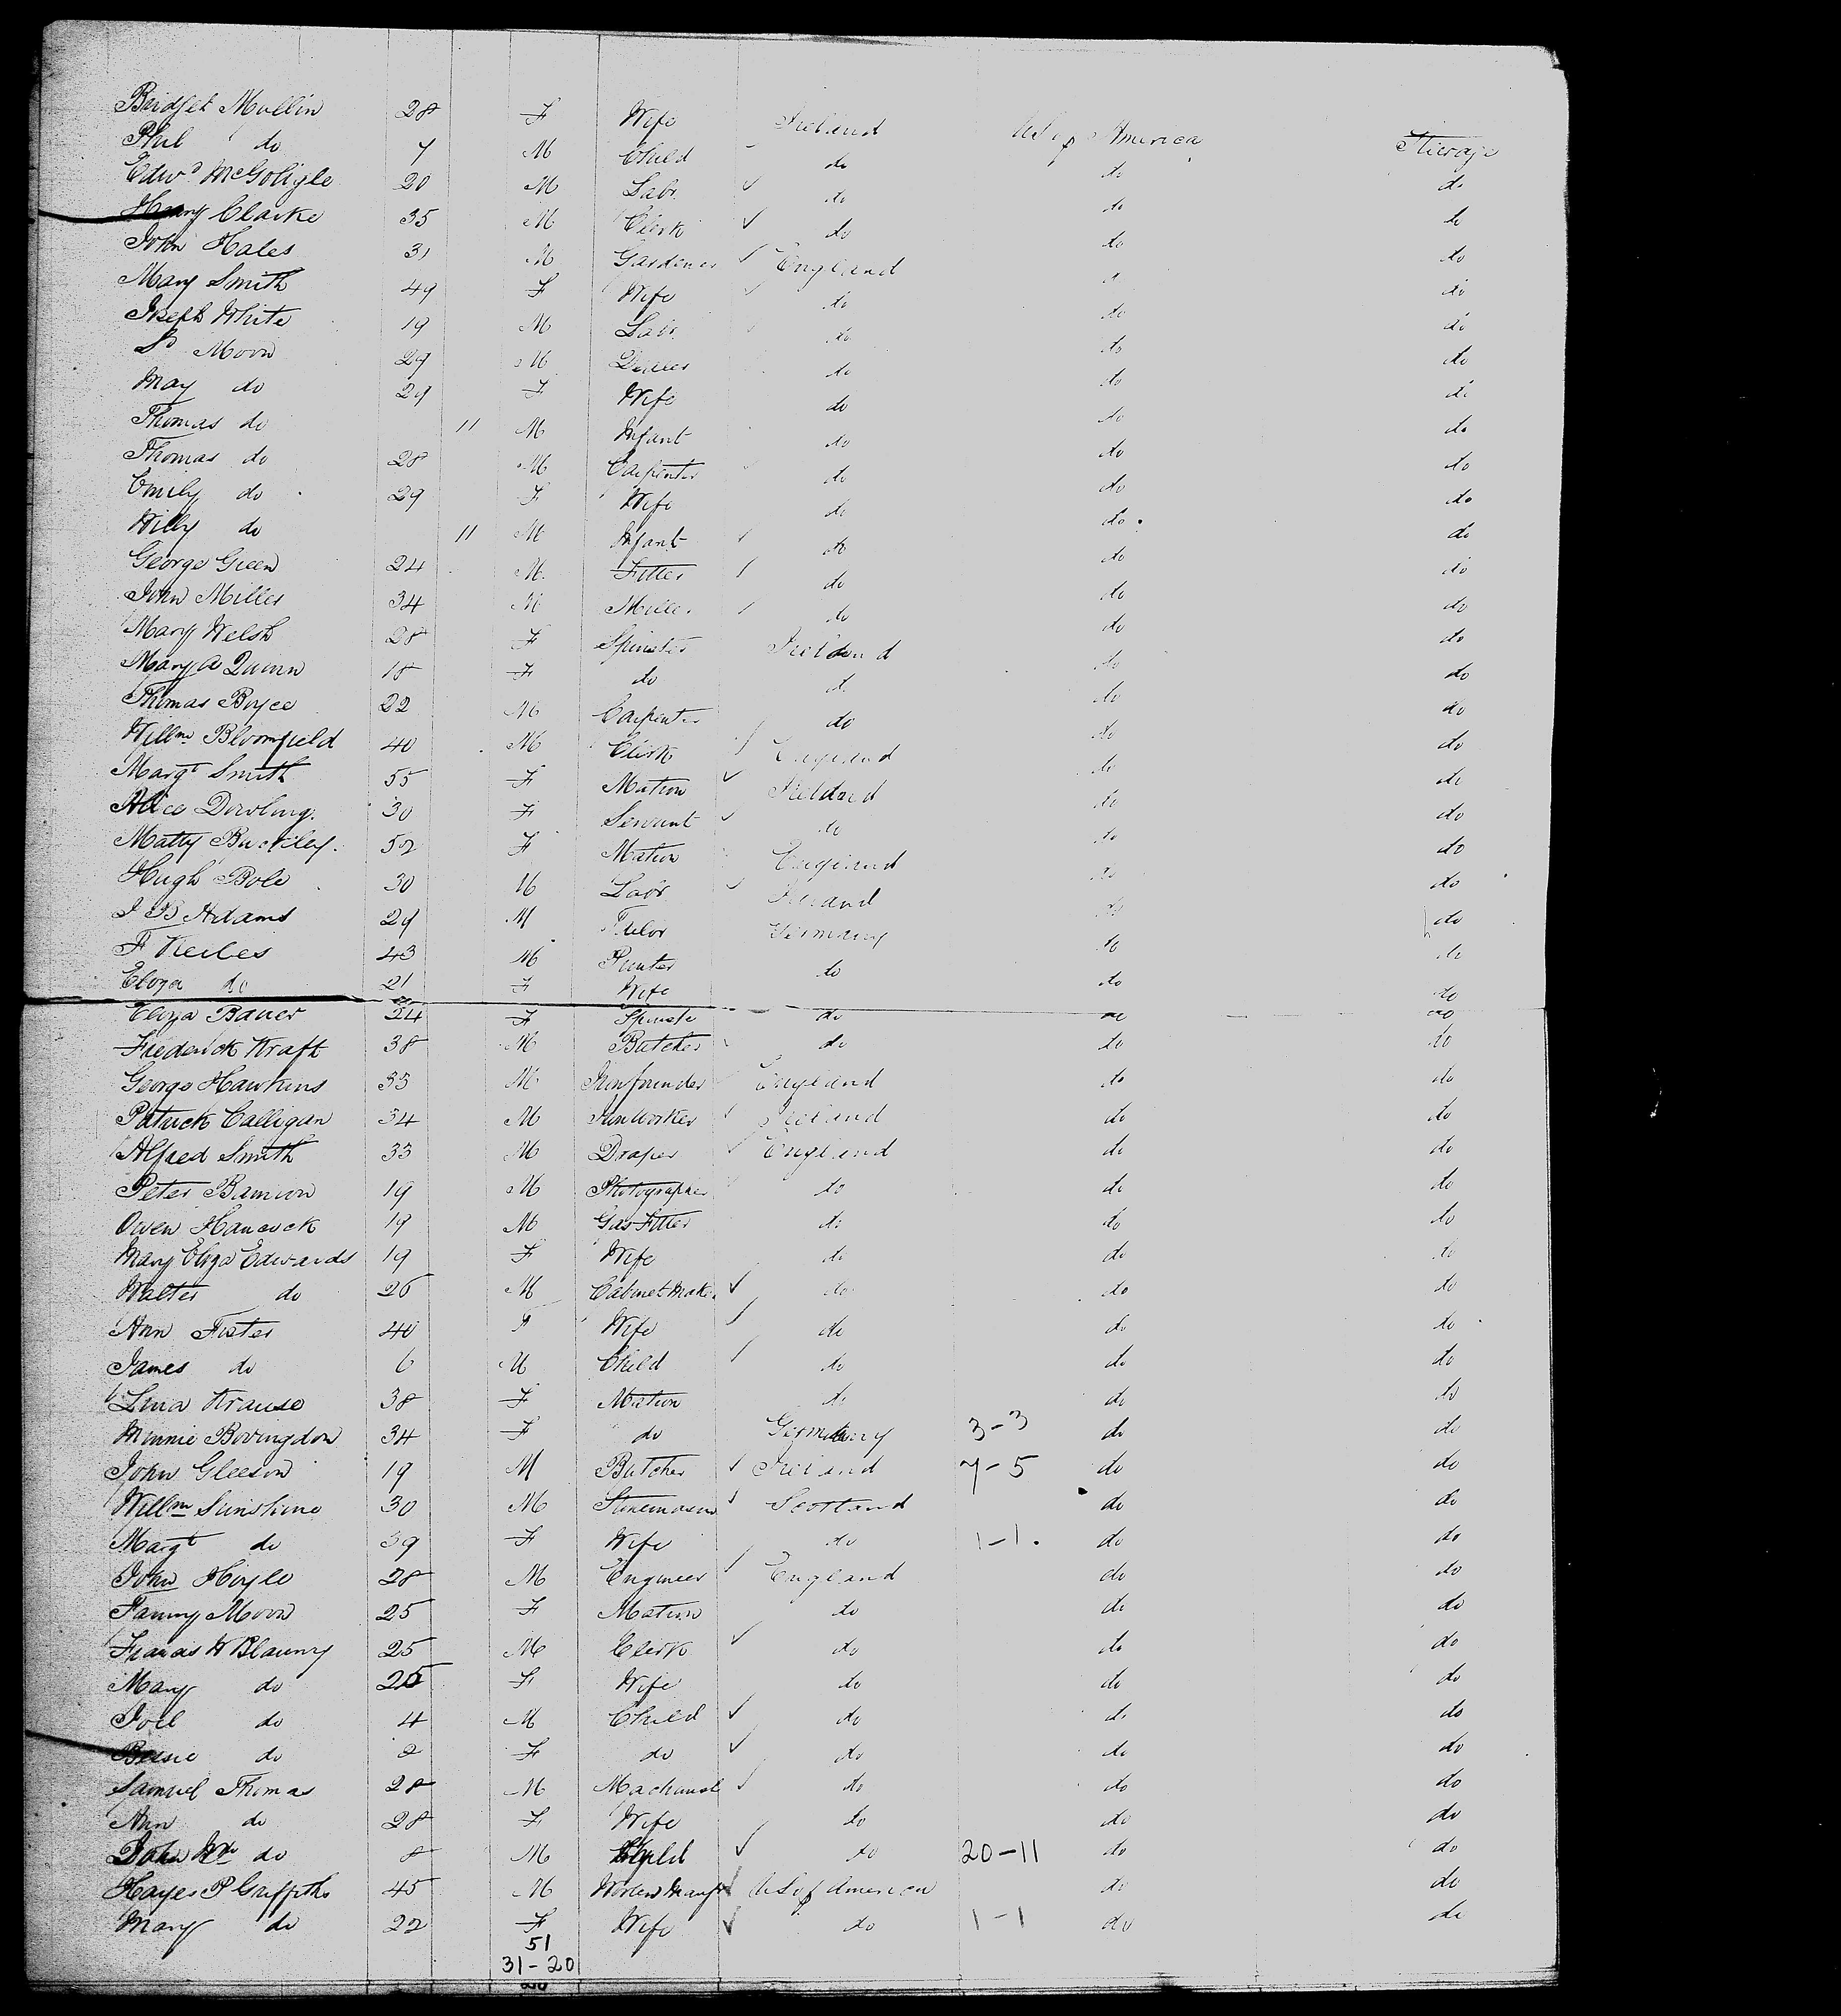 Bridget Mullin 28 F Wife Ireland U S of America Steerage
Phil do 7 M Child do do do
Edwd McGoligle 20 M Labr ✓ do do do
Henry Clarke 35 M Clerk ✓ do do do
John Hales 31 M Gardener ✓ England do do
Mary Smith 49 F Wife ✓ do do do
Joseph White 19 M Labr do do do
Moon 29 M do do do
May do 29 F Wife do do do
Thomas do 11 M Infant do do do
Thomas do 28 M Carpenter do do do
Emily do 29 F Wife do do do
Willy do 11 M Infant do do do
George Green 24 M Fitter do do do
John Miller 34 M Miller do do do
Mary Welsh 28 F Spinster Ireland do do
Mary A Quinn 18 F do do do do
Thomas Boyce 22 M Carpenter do do do
Willm Bloomfield 40 M Clerk England do do
Margt Smith 55 F Matron ✓ Ireland do do
Alice Dowling 30 F Servant ✓ do do do
Matty Buckley 52 F Matron England do do
Hugh Bole 30 M Labr ✓ Ireland do do
J B Adams 29 M Tailor Germany do do
F 43 M Printer do do do
Eliza do 21 F Wife do do
Eliza Bauer 24 F Spinster do do do
Frederick Kraft 38 M Butcher do do do
George Hawkins 33 M Ironfounder England do do
Patrick Calligan 34 M Ironworker Ireland do do
Alfred Smith 33 M Draper England do do
Peter 19 M Photographer do do do
Owen Hancock 19 M Gas Fitter do do do
Mary Eliza Edwards 19 F Wife do do do
Walter do 26 M Cabinet Maker ✓ do do do
Ann Foster 40 F Wife do do do
James do 6 M Child do do do
Lina Krause 38 F Matron do do do
Minnie Bovingdon 34 F do Germany 3-3 do do
John Gleeson 19 M Butcher Ireland 7-5 do do
Willm Sunshine 30 M Stonemason Scotland do do
Margt do 39 F Wife do 1-1 do do
John Hoyle 28 M Engineer England do do
Fanny Moon 25 F Matron do do do
Francis W Blauny 25 M Clerk ✓ do do do
Mary do 25 F Wife do do do
Joel do 4 M Child ✓ do do do
Bessie do 2 F do ✓ do do do
Samuel Thomas 28 M Machinist ✓ do do do
Ann do 28 F Wife do do do
John Wm do 8 M Child ✓ do 20-11 do do
Hayes P Griffiths 45 M Woolen Manufr ✓ U S of America do do
Mary do 22 F Wife ✓ do 1-1 do do
51
31-20
20